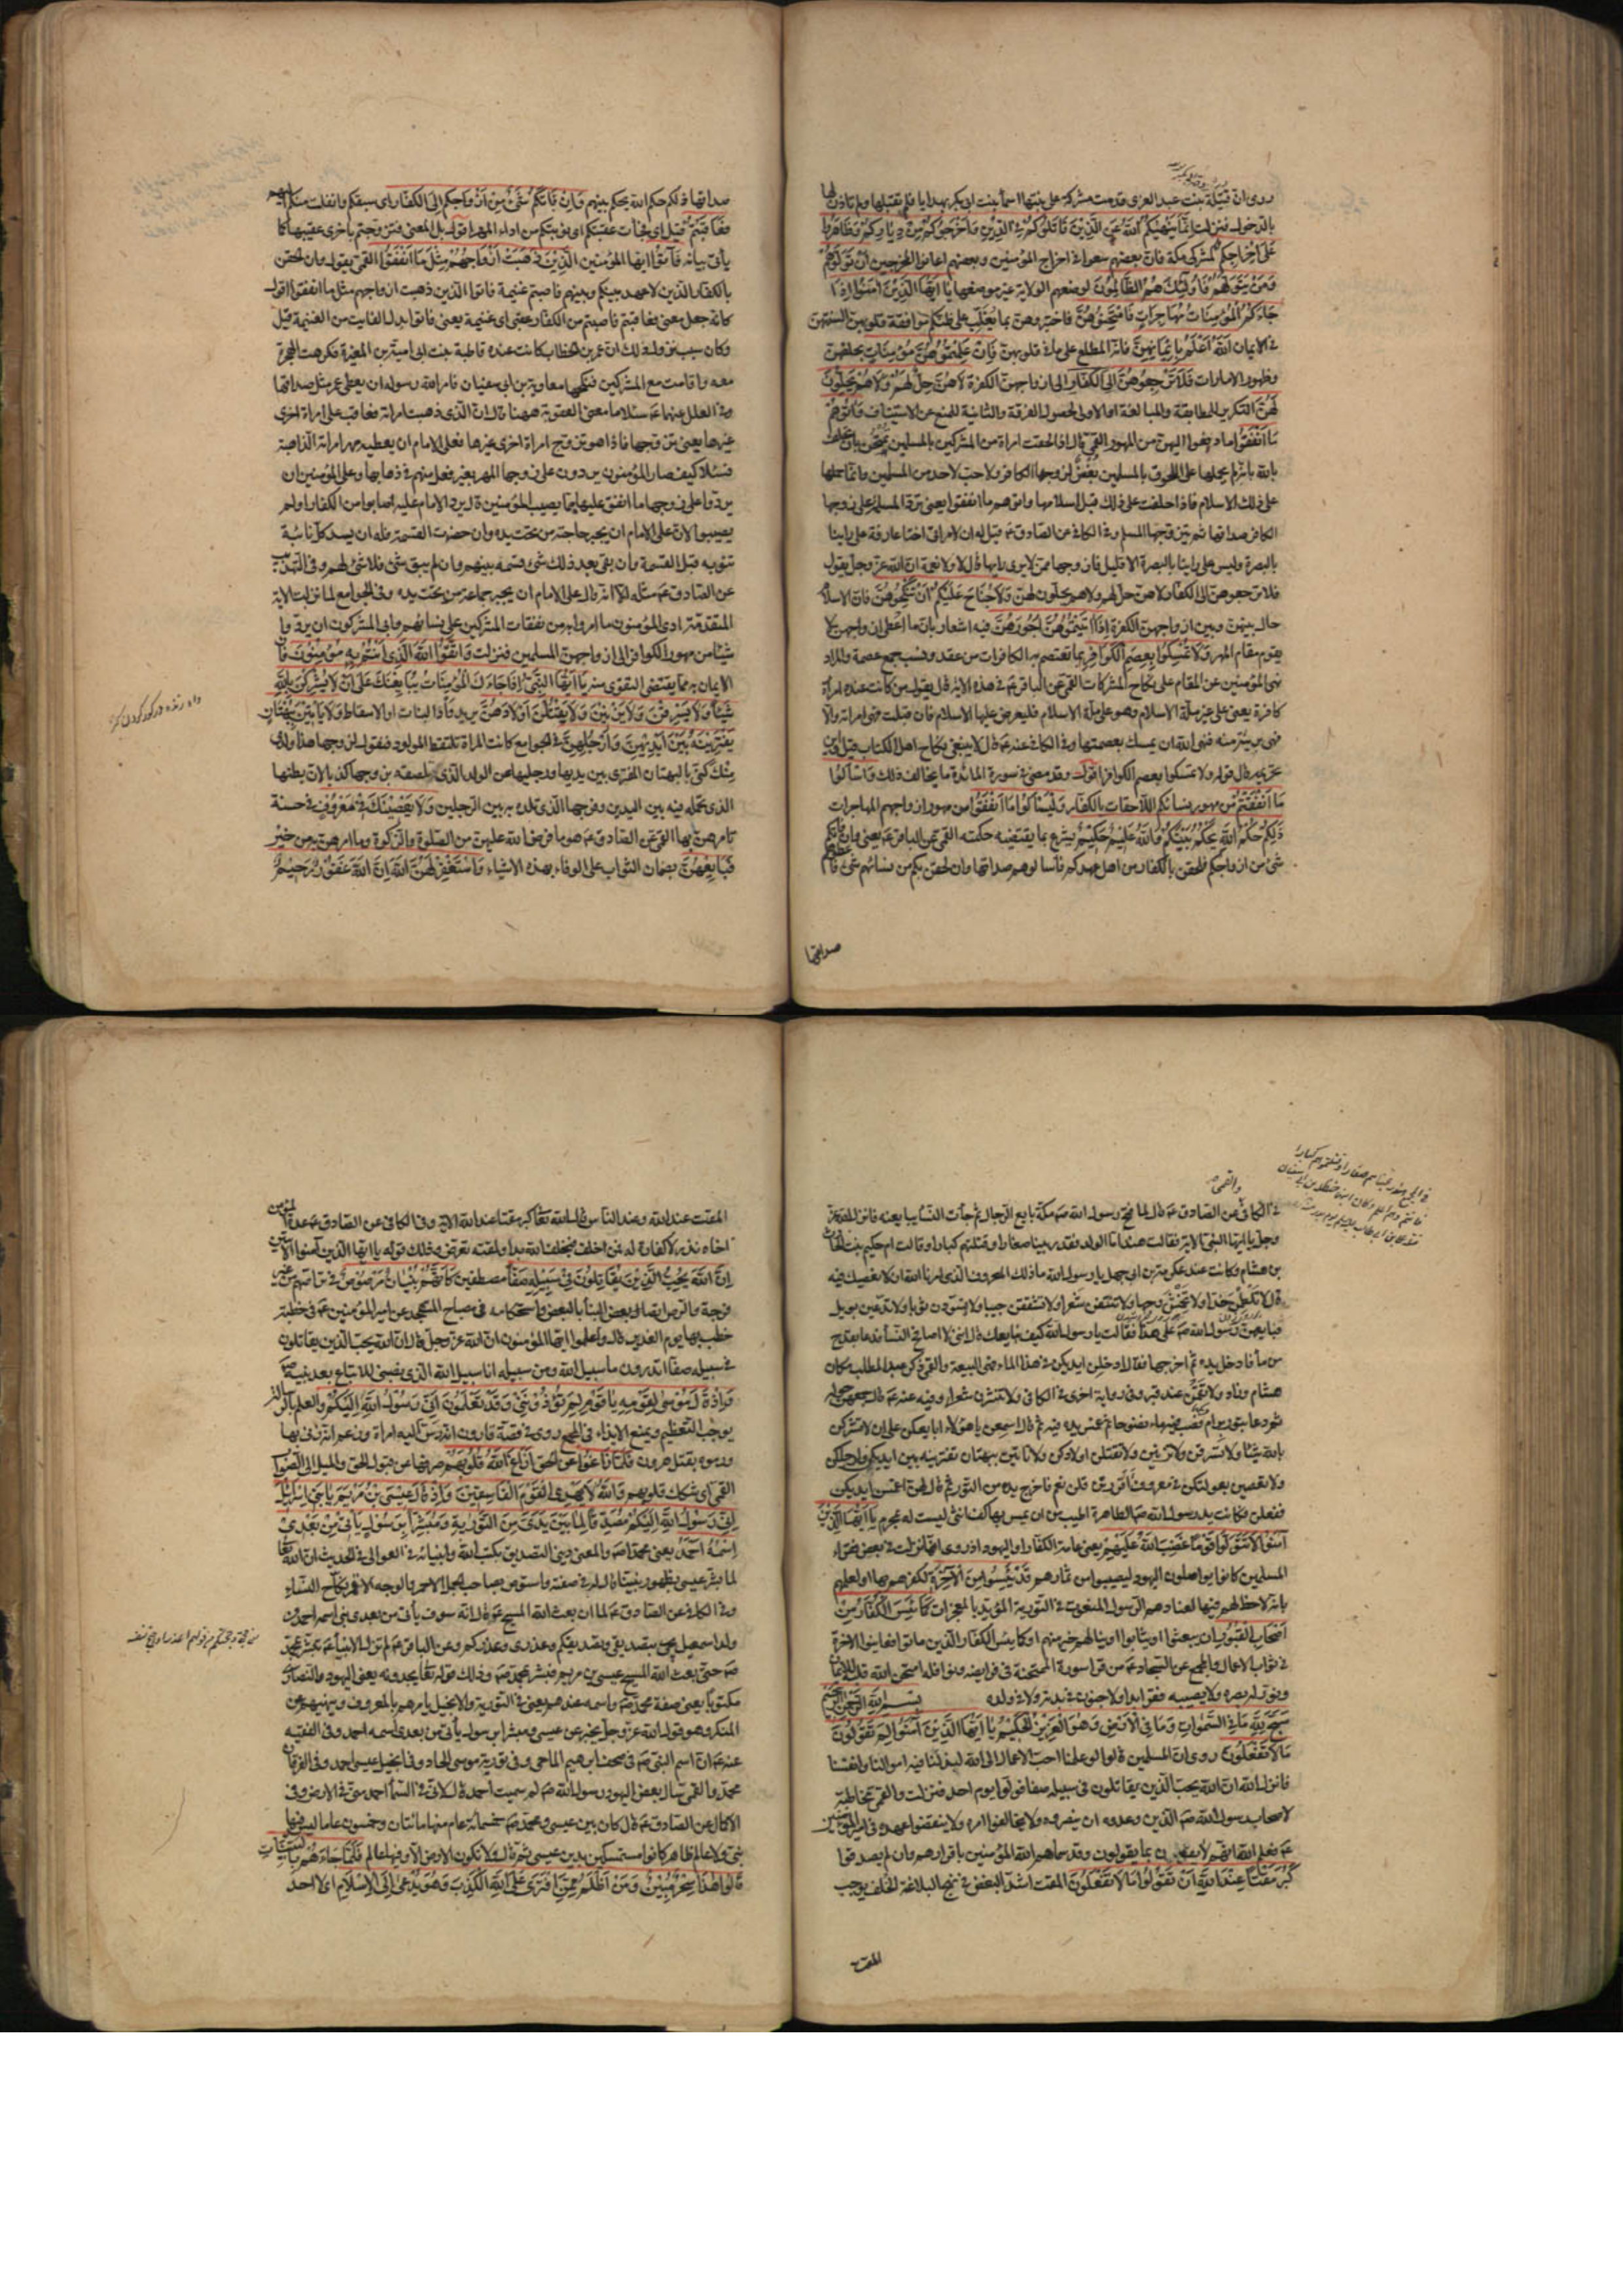 روى ان قتيلة بنت عبد العزى قدمت مشركة على بنتها اسما بنت ابى بكر بهدايا فلم تقبلها ولم تاذن لها
بالدخول فنزلت انما ينهيكم الله عن الذين قاتلوكم في الدين واخرجوكم من دياركم وظاهروا
على اخراجكم كمشركى مكة فان بعضهم سعوا في اخراج المؤمنين وبعضهم اعانوا المخرجين ان تولوهم
ومن يتولهم فاولئك هم الظالمون لوضعهم الولاية غير موضعها يا ايها الذين امنوا اذا
جاءكم المؤمنات مهاجرات فامتحنوهن فاختبروهن بما يغلب على ظنكم موافقة قلوبهن السنتهن
في الايمان الله اعلم بايمانهن فانه المطلع على ما في قلوبهن فان علمتموهن مؤمنات بحلفهن
وظهور الامارات فلا ترجعوهن الى الكفار الى ازواجهن الكفرة لا هن حل لهم ولا هم يحلون
لهن التكرير للمطابقة والمبالغة او الاولى لحصول الفرقة والثانية للمنع عن الاستيناف واتوهم
ما انفقوا ما دفعوا اليهن من المهور القمى قال اذا لحقت امراة من المشركين بالمسلمين تمتحن بان تحلف
بالله بانه لم يحملها على اللحوق بالمسلمين بغض لزوجها الكافر ولا حب لاحد من المسلمين وانما حملها
على ذلك الاسلام فاذا حلفت على ذلك قبل اسلامها واتوهم ما انفقوا يعنى ترد المسلمة على زوجها
الكافر صداقها ثم يتزوجها المسلم وفي الكافي عن الصادق ع قيل له ان لامراتى اختا عارفة على راينا
بالبصرة وليس على راينا بالبصرة الا قليل فازوجها ممن لا يرى رايها قال لا ولا نعمة ان الله عز وجل يقول
فلا ترجعوهن الى الكفار لا هن حل لهم ولا هم يحلون لهن ولا جناح عليكم ان تنكحوهن فان الاسلام
حال بينهن وبين ازواجهن الكفرة اذا اتيتموهن اجورهن فيه اشعار بان ما اعطى ازواجهن لا
يقوم مقام المهر ولا تمسكوا بعصم الكوافر بما تعتصم به الكافرات من عقد ونسب جمع عصمة والمراد
نهى المؤمنين عن المقام على نكاح المشركات القمى عن الباقر ع في هذه الاية قال يقول من كانت عنده امراة
كافرة يعنى على غير ملة الاسلام وهو على ملة الاسلام فليعرض عليها الاسلام فان قبلت فهى امراته والا
فهى برية منه فنهى الله ان يمسك بعصمتها وفي الكافي عنه ع قال لا ينبغى نكاح اهل الكتاب قيل واين
تحريمه قال قوله ولا تمسكوا بعصم الكوافر اقول وقد مضى في سورة المائدة ما يخالف ذلك واسألوا
ما انفقتم من مهور نسائكم اللاحقات بالكفار وليسألوا ما انفقوا من مهور ازواجهم المهاجرات
ذلكم حكم الله يحكم بينكم والله عليم حكيم يشرع بما يقتضيه حكمته القمى عن الباقر ع يعنى وان فاتكم
شئ من ازواجكم فلحقن بالكفار من اهل عهدكم فاسألوهم صداقها وان لحقن بكم من نسائهم شئ فاعطوهم
صداقها
صداقها ذلكم حكم الله يحكم بينهم وان فاتكم شئ من ازواجكم الى الكفار اى سبقكم وانفلت منكم اليهم
فعاقبتم قيل اى فجأت عقبتكم اى نوبتكم من اداء المهر اقول بل المعنى فتزوجتم باخرى عقيبها كما
يأتى بيانه فآتوا ايها المؤمنين الذين ذهبت ازواجهم مثل ما انفقوا القمى يقول وان لحقن
بالكفار الذين لا عهد بينكم وبينهم فاصبتم غنيمة فاتوا الذين ذهبت ازواجهم مثل ما انفقوا قال
كانه جعل معنى فعاقبتم فاصبتم من الكفار عقبى اى غنيمة يعنى فاتوا بدل الفايت من الغنيمة قيل
وكان سبب نزول ذلك ان عمر بن الخطاب كانت عنده فاطمة بنت ابى امية بن المغيرة فكرهت الهجرة
معه واقامت مع المشركين فنكحها معاوية بن ابى سفيان فامر الله رسوله ان يعطى عمر مثل صداقها
وفي العلل عنهما ع سئلا ما معنى العقوبة ههنا قال ان الذى ذهبت امراته فعاقب على امراة اخرى
غيرها يعنى تزوجها فاذا هو تزوج امراة اخرى غيرها فعلى الامام ان يعطيه مهر امراته الذاهبة
فسئلا كيف صار المؤمنون يردون على زوجها المهر بغير فعل منهم في ذهابها وعلى المؤمنين ان
يردوا على زوجها ما انفق عليها مما يصيب المؤمنين قال يرد الامام عليه اصابوا من الكفار او لم
يصيبوا لان على الامام ان يجبر حاجته من تحت يده وان حضرت القسمة فله ان يسد كل نائبة
تنوبه قبل القسمة وان بقى بعد ذلك شئ قسمه بينهم وان لم يبق شئ فلا شئ لهم وفي التهذيب
عن الصادق ع مثله الا انه قال على الامام ان يجبر جماعة من تحت يده وفي الجوامع لما نزلت الاية
المتقدمة ادى المؤمنون ما امروا به من نفقات المشركين على نسائهم وابى المشركون ان يردوا
شيئا من مهور الكوافر الى ازواجهن المسلمين فنزلت واتقوا الله الذى انتم به مؤمنون فان
الايمان به مما يقتضى التقوى منه يا ايها النبى اذا جاءك المؤمنات يبايعنك على ان لا يشركن بالله
شيئا ولا يسرقن ولا يزنين ولا يقتلن اولادهن يريد وأد البنات او الاسقاط ولا يأتين ببهتان
يفترينه بين ايديهن وارجلهن في الجوامع كانت المراة تلتقط المولود فتقول لزوجها هذا ولدى
منك كنى بالبهتان المفترى بين يديها ورجليها عن الولد الذى تلصقه بزوجها كذبا لان بطنها
الذى تحمله فيه بين اليدين وفرجها الذى تلده به بين الرجلين ولا يعصينك في معروف في حسنة
تامرهن بها القمى عن الصادق ع هو ما فرض الله عليهن من الصلوة والزكوة وما امرهن به من خير
فبايعهن بضمان الثواب على الوفاء بهذه الاشياء واستغفر لهن الله ان الله غفور رحيم
في الكافي عن الصادق ع قال لما فتح رسول الله ص مكة بايع الرجال ثم جاءت النسا يبايعنه فانزل الله عز
وجل يا ايها النبى الاية فقالت هند اما الولد فقد ربينا صغارا وقتلتهم كبارا وقالت ام حكيم بنت الحارث
بن هشام وكانت عند عكرمة بن ابى جهل يا رسول الله ما ذلك المعروف الذى امرنا الله ان لا نعصيك فيه
قال لا تلطمن خدا ولا تخمشن وجها ولا تنتفن شعرا ولا تشققن جيبا ولا تسودن ثوبا ولا تدعين بويل
فبايعهن رسول الله ص على هذا فقالت يا رسول الله كيف نبايعك قال اننى لا اصافح النسا فدعا بقدح
من ماء فادخل يده ثم اخرجها فقال ادخلن ايديكن في هذا الماء فهى البيعة
ثم دعا بتور برام فصب فيه ماء نضوحا ثم غمس يده فيه ثم قال اسمعن يا هؤلاء ابايعكن على ان لا تشركن
بالله شيئا ولا تسرقن ولا تزنين ولا تقتلن اولادكن ولا تاتين ببهتان تفترينه بين ايديكن وارجلكن
ولا تعصين بعولتكن في معروف أأقررتن قلن نعم فاخرج يده من التور ثم قال لهن اغمسن ايديكن
ففعلن فكانت يد رسول الله ص الطاهرة اطيب من ان يمس بها كف انثى ليست له بمحرم يا ايها الذين
آمنوا لا تتولوا قوما غضب الله عليهم يعنى عامة الكفار او اليهود اذ روى انها نزلت في بعض فقراء
المسلمين كانوا يواصلون اليهود ليصيبوا من ثمارهم قد يئسوا من الآخرة لكفرهم بها او لعلمهم
بانه لا حظ لهم فيها لعنادهم الرسول المنعوت في التورية المؤيد بالمعجزات كما يئس الكفار من
اصحاب القبور ان يبعثوا او يثابوا او ينالهم خير منهم او كما يئس الكفار الذين ماتوا فعاينوا الاخرة
في ثواب الاعمال والمجمع عن السجاد ع من قرا سورة الممتحنة في فرايضه ونوافله امتحن الله قلبه للايمان
ونور له بصره ولا يصيبه فقر ابدا ولا جنون في بدنه ولا في ولده بسم الله الرحمن الرحيم
سبح لله ما في السموات وما في الارض وهو العزيز الحكيم يا ايها الذين آمنوا لم تقولون
ما لا تفعلون روى ان المسلمين قالوا لو علمنا احب الاعمال الى الله لبذلنا فيه اموالنا وانفسنا
فانزل الله ان الله يحب الذين يقاتلون في سبيله صفا فولوا يوم احد فنزلت والقمى مخاطبة
لاصحاب رسول الله ص الذين وعدوه ان ينصروه ولا يخالفوا امره ولا ينقضوا عهده في امير المؤمنين
ع فعلم الله انهم لا يفون بما يقولون وقد سماهم الله المؤمنين باقرارهم وان لم يصدقوا
كبر مقتا عند الله ان تقولوا ما لا تفعلون المقت اشد البغض في نهج البلاغة الخلف يوجب
المقت
المقت عند الله وعند الناس قال الله تعالى كبر مقتا عند الله الاية وفي الكافي عن الصادق ع عدة المؤمن
اخاه نذر لا كفارة له فمن اخلف فبخلف الله بدا ولمقته تعرض وذلك قوله يا ايها الذين آمنوا الآيتين
ان الله يحب الذين يقاتلون في سبيله صفا مصطفين كانهم بنيان مرصوص في تراصهم من غير
فرجة والرص اتصال بعض البنأ بالبعض واستحكامه في مصباح المتهجد عن امير المؤمنين ع في خطبة
خطب بها يوم الغدير قال واعلموا ايها المؤمنون ان الله عز وجل قال ان الله يحب الذين يقاتلون
في سبيله صفا اتدرون ما سبيل الله ومن سبيله انا سبيل الله الذى نصبنى للاتباع بعد نبيه ص
واذ قال موسى لقومه يا قوم لم تؤذوننى وقد تعلمون انى رسول الله اليكم والعلم بالرسالة
يوجب التعظيم ويمنع الايذاء في المجمع روى في قصة قارون انه دس اليه امراة وزعم انه زنى بها
ورموه بقتل هرون فلما زاغوا عن الحق ازاغ الله قلوبهم صرفها عن قبول الحق والميل الى الصواب
القمى اى شكك قلوبهم والله لا يهدى القوم الفاسقين واذ قال عيسى بن مريم يا بنى اسرائيل
انى رسول الله اليكم مصدقا لما بين يدى من التورية ومبشرا برسول يأتى من بعدى
اسمه احمد يعنى محمدا ص والمعنى دينى التصديق بكتب الله وانبيائه في العوالى في الحديث ان الله تعالى
لما بشر عيسى بظهور نبينا قال له في صفته واستوص بصاحب الجمل الاحمر والوجه الاقمر نكاح النساء
وفي الكافي عن الصادق ع لما ان بعث الله المسيح ع قال انه سوف يأتى من بعدى نبى اسمه احمد من
ولد اسمعيل يجئ بتصديقى وتصديقكم وعذرى وعذركم وعن الباقر ع لم تزل الانبياء ع تبشر بمحمد
ص حتى بعث الله المسيح عيسى بن مريم فبشر بمحمد ص وذلك قوله تعالى يجدونه يعنى اليهود والنصارى
مكتوبا يعنى صفة محمد ص واسمه عندهم يعنى في التورية والانجيل يامرهم بالمعروف وينهيهم عن
المنكر وهو قول الله عز وجل يخبر عن عيسى ومبشرا برسول يأتى من بعدى اسمه احمد وفي الفقيه
عنه ع ان اسم النبى ص في صحف ابراهيم الماحى وفي تورية موسى الحاد وفي انجيل عيسى احمد وفي الفرقان
محمد والقمى سال بعض اليهود رسول الله ص لم سميت احمد قال لانى في السمأ احمد منى في الارض وفي
الاكمال عن الصادق ع قال كان بين عيسى ومحمد ص خمسمائة عام منها مائتان وخمسون عاما ليس فيها
نبى ولا عالم ظاهر كانوا مستمسكين بدين عيسى ثم قال ولا تكون الارض الا وفيها عالم فلما جاءهم بالبينات
قالوا هذا سحر مبين ومن اظلم ممن افترى على الله الكذب وهو يدعى الى الاسلام اى لا احد